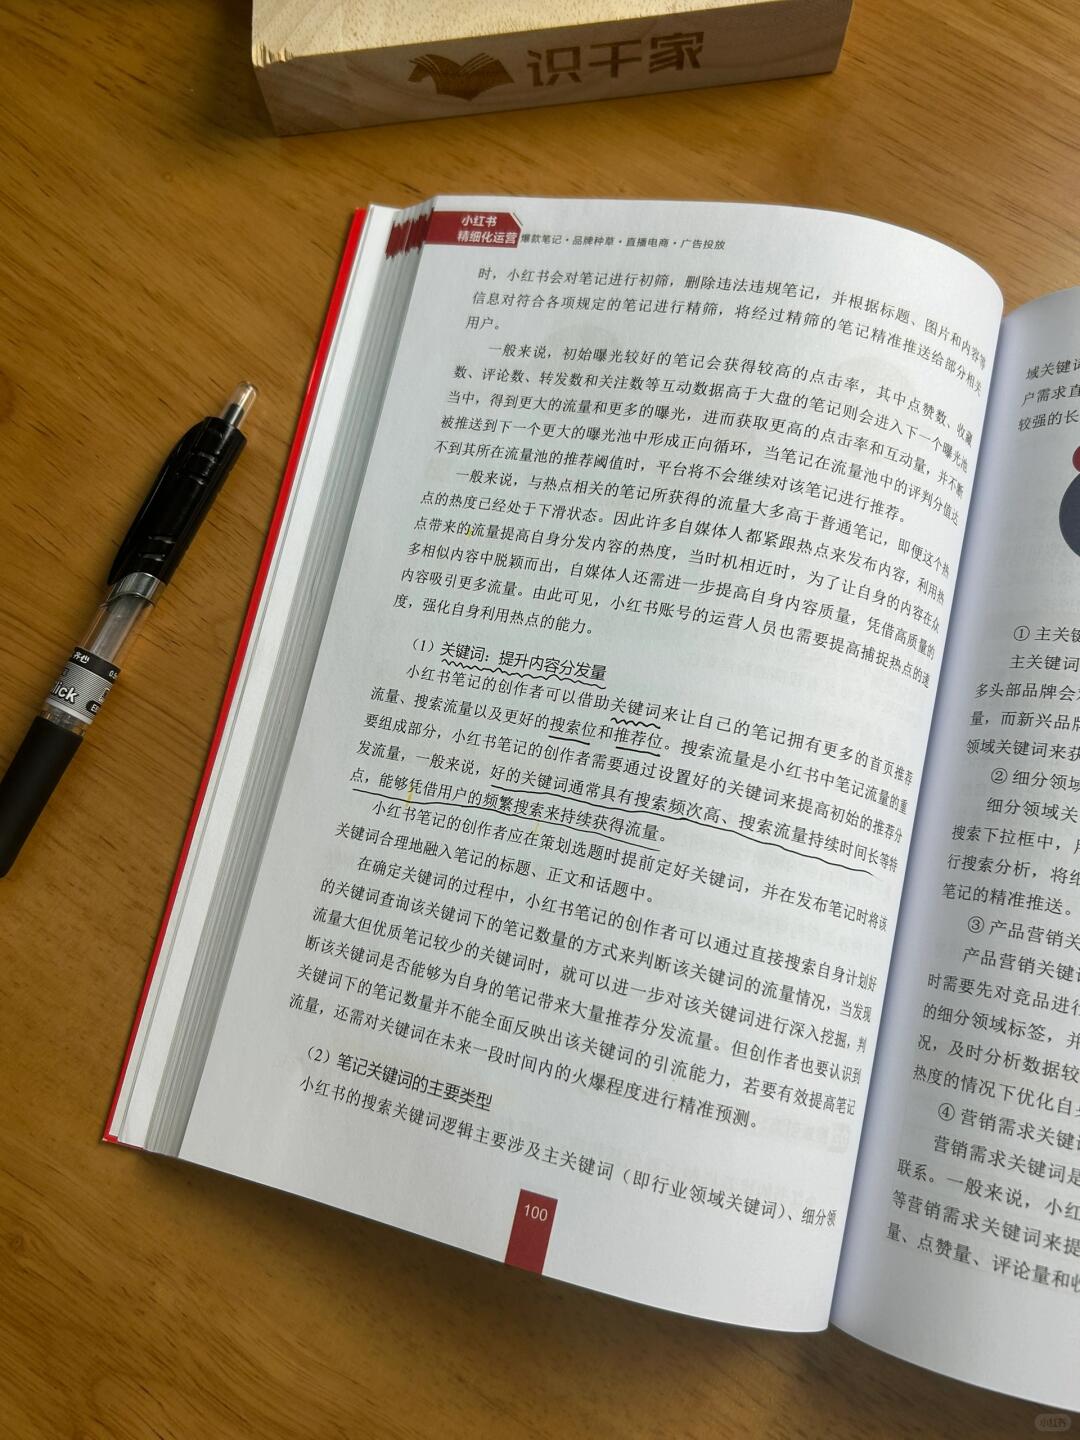 识干家
小红书
精细化运营
爆款笔记·品牌种草·直播电商·广告投放
时，小红书会对笔记进行初筛，删除违法违规笔记，并根据标题、图片和内容等
信息对符合各项规定的笔记进行精筛，将经过精筛的笔记精准推送给部分相关
用户。
一般来说，初始曝光较好的笔记会获得较高的点击率，其中点赞数、收藏
数、评论数、转发数和关注数等互动数据高于大盘的笔记则会进入下一个曝光池
当中，得到更大的流量和更多的曝光，进而获取更高的点击率和互动量，并不断
被推送到下一个更大的曝光池中形成正向循环，当笔记在流量池中的评判分值达
不到其所在流量池的推荐阈值时，平台将不会继续对该笔记进行推荐。
一般来说，与热点相关的笔记所获得的流量大多高于普通笔记，即便这个热
点的热度已经处于下滑状态。因此许多自媒体人都紧跟热点来发布内容，利用热
点带来的流量提高自身分发内容的热度，当时机相近时，为了让自身的内容在众
多相似内容中脱颖而出，自媒体人还需进一步提高自身内容质量，凭借高质量的
内容吸引更多流量。由此可见，小红书账号的运营人员也需要提高捕捉热点的速
度，强化自身利用热点的能力。
（1）关键词：提升内容分发量
小红书笔记的创作者可以借助关键词来让自己的笔记拥有更多的首页推荐
流量、搜索流量以及更好的搜索位和推荐位。搜索流量是小红书中笔记流量的重
要组成部分，小红书笔记的创作者需要通过设置好的关键词来提高初始的推荐分
发流量，一般来说，好的关键词通常具有搜索频次高、搜索流量持续时间长等特
点，能够凭借用户的频繁搜索来持续获得流量。
小红书笔记的创作者应在策划选题时提前定好关键词，并在发布笔记时将该
关键词合理地融入笔记的标题、正文和话题中。
在确定关键词的过程中，小红书笔记的创作者可以通过直接搜索自身计划好
的关键词查询该关键词下的笔记数量的方式来判断该关键词的流量情况，当发现
流量大但优质笔记较少的关键词时，就可以进一步对该关键词进行深入挖掘，判
断该关键词是否能够为自身的笔记带来大量推荐分发流量。但创作者也要认识到
关键词下的笔记数量并不能全面反映出该关键词的引流能力，若要有效提高笔记
流量，还需对关键词在未来一段时间内的火爆程度进行精准预测。
（2）笔记关键词的主要类型
小红书的搜索关键词逻辑主要涉及主关键词（即行业领域关键词）、细分领
100
域关键词
户需求直
较强的长
① 主关键
主关键词
多头部品牌会
量，而新兴品牌
领域关键词来获
② 细分领域
细分领域关
搜索下拉框中，
行搜索分析，将
笔记的精准推送。
③ 产品营销关
产品营销关键
时需要先对竞品进行
的细分领域标签，并
况，及时分析数据较
热度的情况下优化自
④ 营销需求关键
营销需求关键词是
联系。一般来说，小红
等营销需求关键词来提
量、点赞量、评论量和收
齐心
lick
小红书